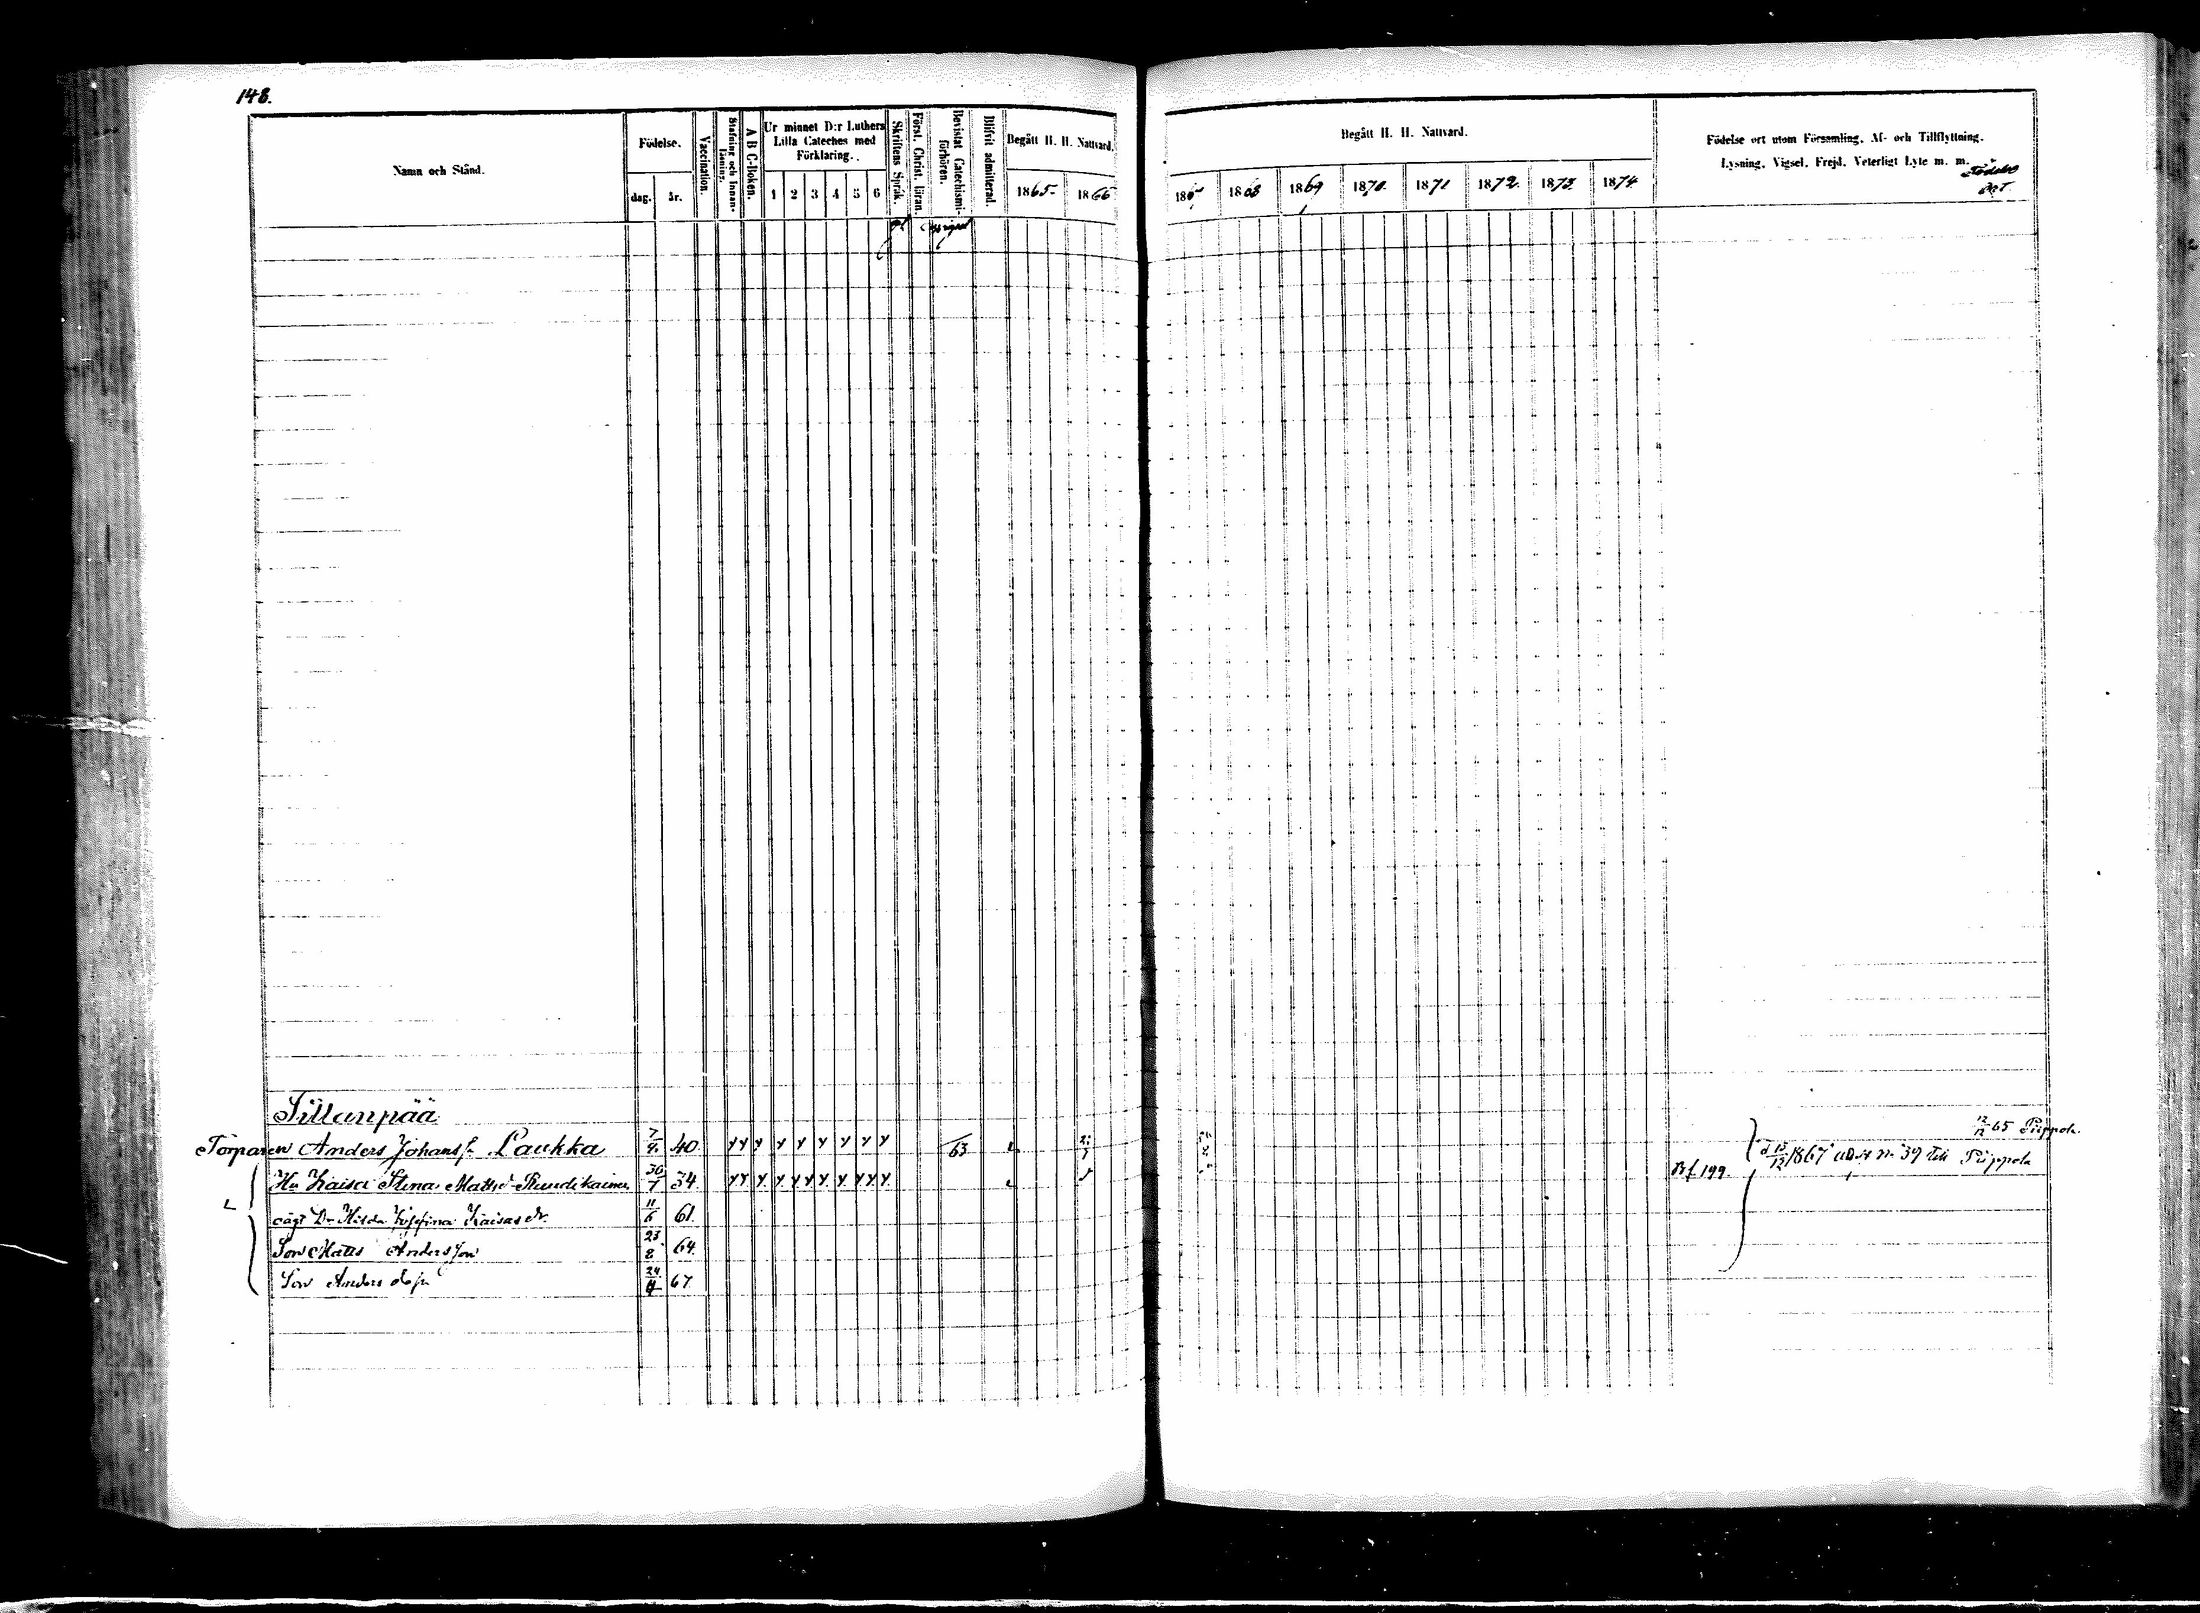 148.
Namn och Stånd.
Födelse.
dag.
år.
Vaccination.
Stafning och Innanläsning.
A B C-Boken.
Ur minnet D:r Luthers Lilla Cateches med Förklaring.
1 2 3 4 5 6
Skriftens Språk.
Först. Christ. läran.
Bevistat Catechismiförhören.
Blifvit admitterad.
Begått H. H. Nattvard.
1865. 1866
Begått H. H. Nattvard.
1867 1868 1869 1870. 1871 1872. 1873 1874
Födelse ort utom Församling. Af- och Tillflyttning.
Lysning, Vigsel, Frejd, Veterligt Lyte m. m.
Födelse
ort
Sillanpää
Torparen Anders Johanss. Laukka 7/9 40 63
12/12 65 Pippola.
1867 39 till Pippola
Hu Kaisa Stina Mattsd. 30/7 34.
Bf 199.
Dr Hilda Josefina Kaisasdr. 11/6 61.
Son Matts Andersson 23/8 64.
Son Anders 24/4 67.